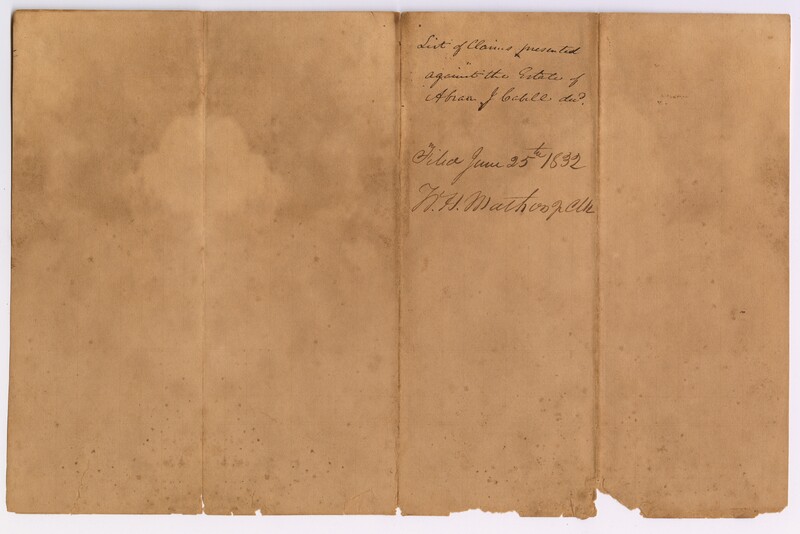 List of Claims presented
against the Estate of
Abram J Cabell dec'd.
Filed June 25th 1832
W. H. Mathous Clk